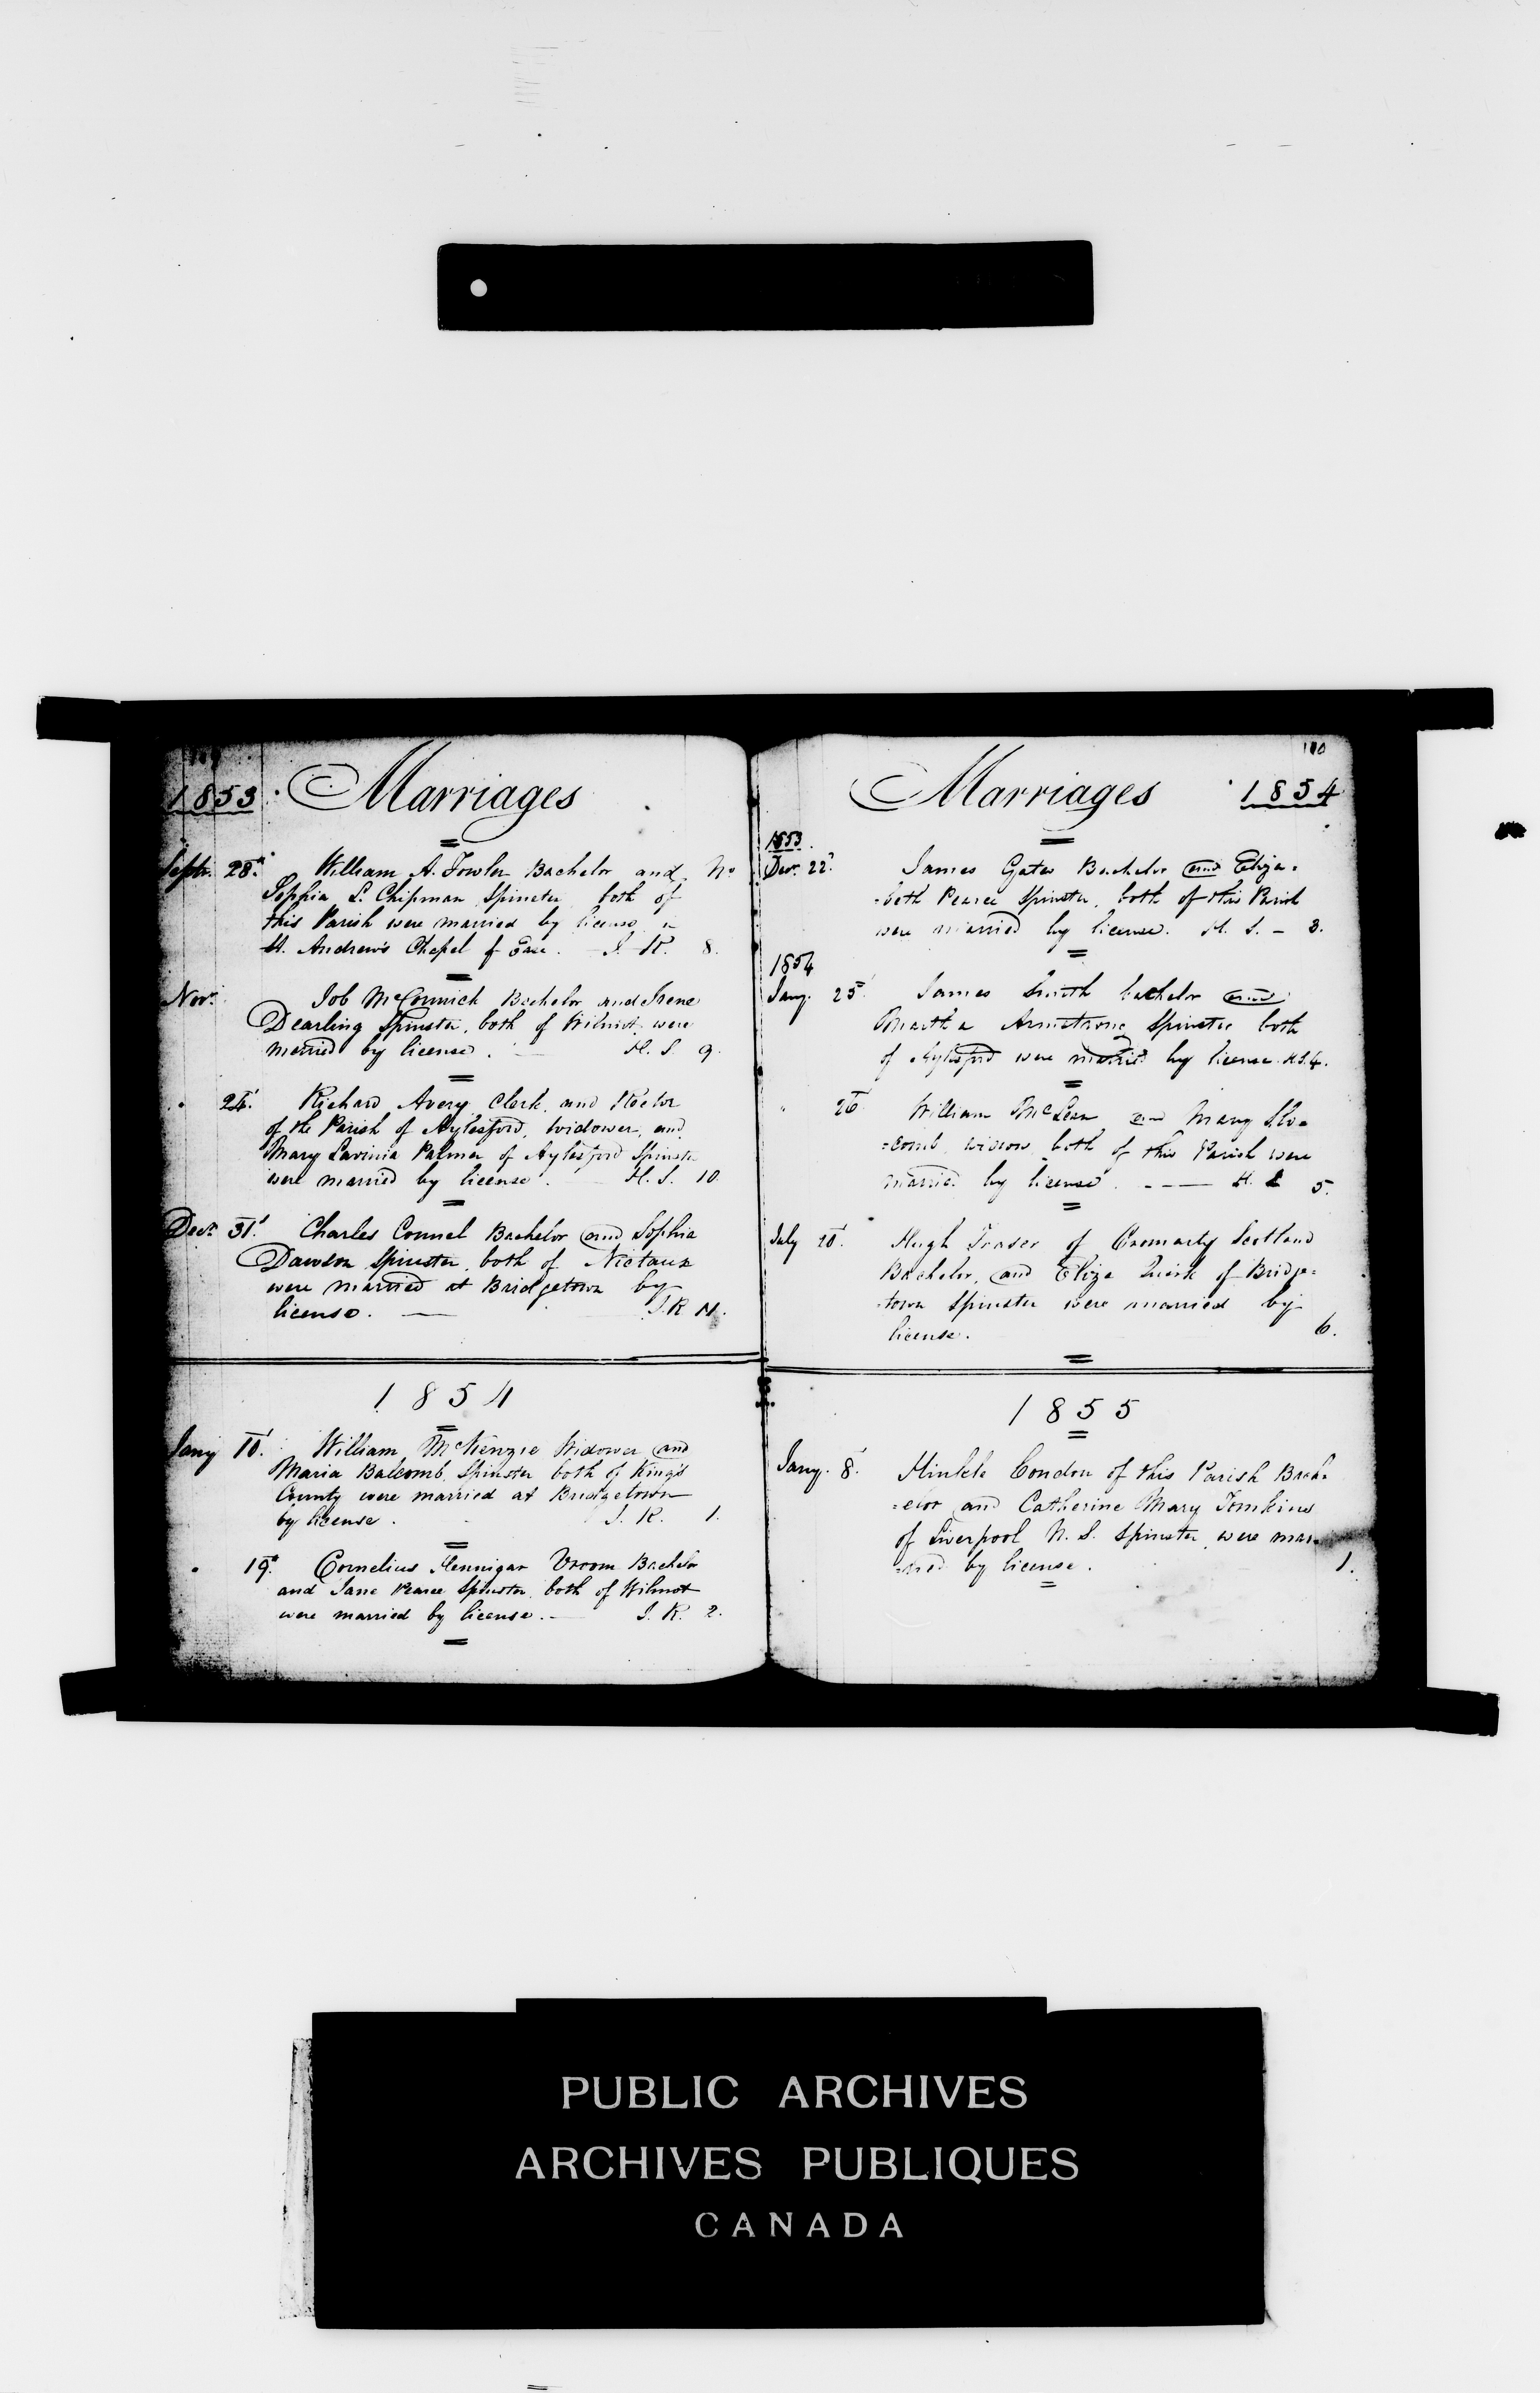 1853 Marriages
Septr. 28. William A. Fowler Bachelor and No
Sophia L. Chipman Spinster both of
this Parish were married by license in
St. Andrew's Chapel of Ease. J. R. 8.
Novr. Job McCormick Bachelor and Irene
Dearling Spinster, both of Wilmot were
married by license. H. S. 9.
24. Richard Avery Clerk and Rector
of the Parish of Aylesford, widower, and
Mary Lavinia Palmer of Aylesford Spinster
were married by license. H. S. 10.
Decr. 31. Charles Connel Bachelor and Sophia
Dawson Spinster, both of Nictaux
were married at Bridgetown by
license. J. R 11.
1854
Jany 10. William McKenzie Widower and
Maria Balcomb Spinster both of King's
County were married at Bridgetown
by license. J. R. 1.
19. Cornelius Hennigar Vroom Bachelor
and Jane Pearce Spinster both of Wilmot
were married by license. J. R. 2.
110
Marriages 1854
1853.
Decr. 22. James Gates Bachelor and Eliza-
-beth Pearce Spinster, both of this Parish
were married by license. H. S. - 3.
1854
Jany. 25 James Smith bachelor and
Martha Armstrong Spinster both
of Aylesford were married by license. H.S. 4.
26 William McLean and Mary Slo-
-comb widow both of this Parish were
married by license. H. S 5.
July 20. Hugh Fraser of Cromarty Scotland
Bachelor, and Eliza Quirk of Bridge-
-town Spinster were married by
license. 6.
1855
Jany. 8. Hinkle Condon of this Parish Bach-
-elor and Catherine Mary Tomkins
of Liverpool N. S. Spinster, were mar-
-ried by license. 1.
PUBLIC ARCHIVES
ARCHIVES PUBLIQUES
CANADA